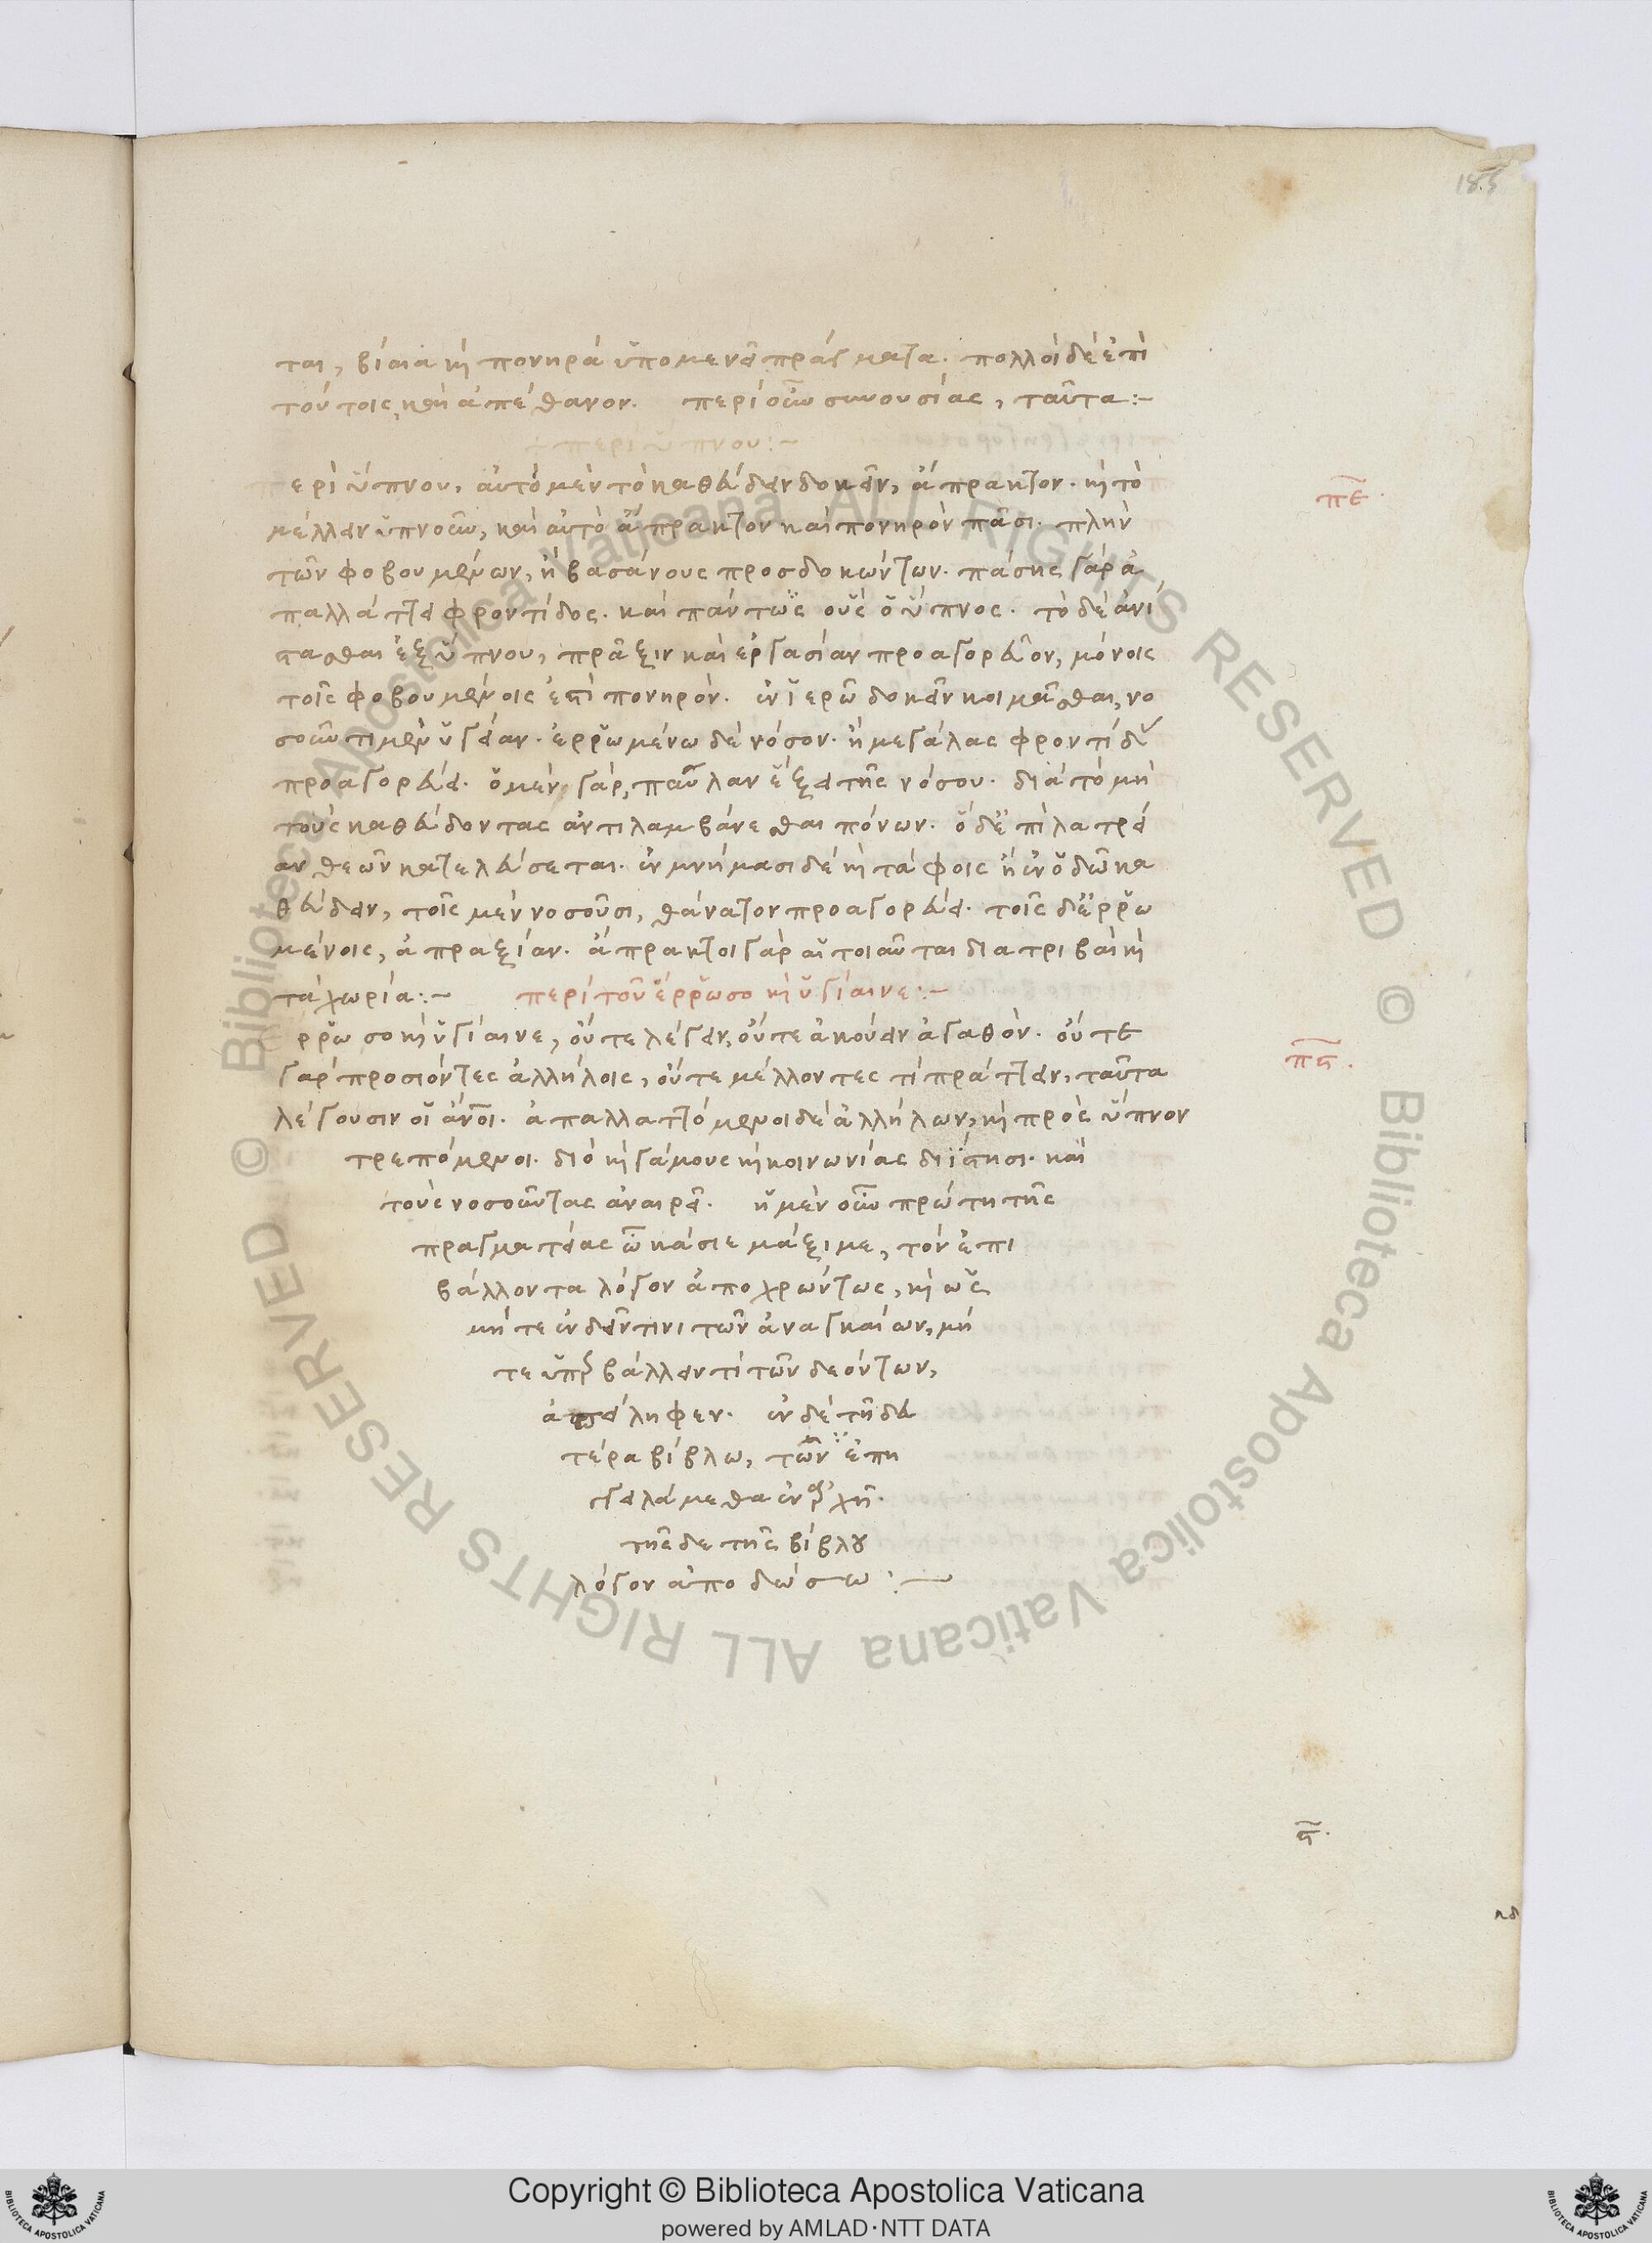 185
ται, βίαια καὶ πονηρὰ ὑπομενεῖ πράγματα. πολλοὶ δὲ ἐπὶ
τούτοις καὶ ἀπέθανον. περὶ οὖν συνουσίας, ταῦτα:~
+ περὶ ὕπνου:~
ερὶ ὕπνου, αὐτὸ μὲν τὸ καθεύδειν δοκεῖν, ἄπρακτον. καὶ τὸ
πε.
μέλλειν ὑπνοῦν, καὶ αὐτὸ ἄπρακτον καὶ πονηρὸν πᾶσι. πλὴν
τῶν φοβουμένων, ἢ βασάνους προσδοκώντων. πάσης γὰρ ἀ
παλλάττει φροντίδος. καὶ παντὼς οὓς ὁ ὕπνος. τὸ δὲ ἀνί
στασθαι ἐξ ὕπνου, πρᾶξιν καὶ ἐργασίαν προαγορεῦον, μόνοις
τοῖς φοβουμένοις ἐστὶ πονηρόν. ἐν ἱερῶ δοκεῖν κοιμᾶσθαι, νο
σοῦντι μὲν ὑγείαν. ἐρρωμένω δὲ νόσον. ἢ μεγάλας φροντίδας
προαγορεύει. ὁ μὲν γὰρ, παῦλαν ἕξει τῆς νόσου. διὰ τὸ μὴ
τοὺς καθεύδοντας ἀντιλαμβάνεσθαι πόνων. ὁ δὲ ἐπὶ λατρεί
αν θεῶν κατελεύσεται. ἐν μνήμασι δὲ καὶ τάφοις ἢ ἐν ὁδῶ κα
θεύδειν, τοῖς μὲν νοσοῦσι, θάνατον προαγορεύει. τοῖς δὲ ἐρρω
μένοις, ἀπραξίαν. ἄπρακτοι γὰρ αἱ τοιαῦται διατριβαὶ καὶ
τὰ χωρία:~ περὶ τοῦ ἔρρωσο καὶ ὑγίαινε:~
ρρωσο καὶ ὑγίαινε, οὔτε λέγειν, οὔτε ἀκούειν ἀγαθόν. οὔτε
πς.
γὰρ προσιόντες ἀλλήλοις, οὔτε μέλλοντες τὶ πράττειν, ταῦτα
λέγουσιν οἱ ἄνοι. ἀπαλλαττόμενοι δὲ ἀλλήλων, καὶ πρὸς ὕπνον
τρεπόμενοι. διὸ καὶ γάμους καὶ κοινωνίας διΐστησι. καὶ
τοὺς νοσοῦντας ἀναιρεῖ. ἡ μὲν οὖν πρώτη τῆς
πραγματείας ὦ κάσιε μάξιμε, τὸν ἐπι
βάλλοντα λόγον ἀποχρώντως, καὶ ὡς
μήτε ἐνδεῖν τινι τῶν ἀναγκαίων, μή
τε ὑπερβάλλειν τὶ τῶν δεόντων,
ἀπείληφεν. ἐν δὲ τῆ δευ
τέρα βίβλω, τῶν ἐπη
γειλάμεθα ἐν ἀρχῆ.
τῆς δε τῆς βίβλου
λόγον ἀποδώσω:—
ς.
κδ